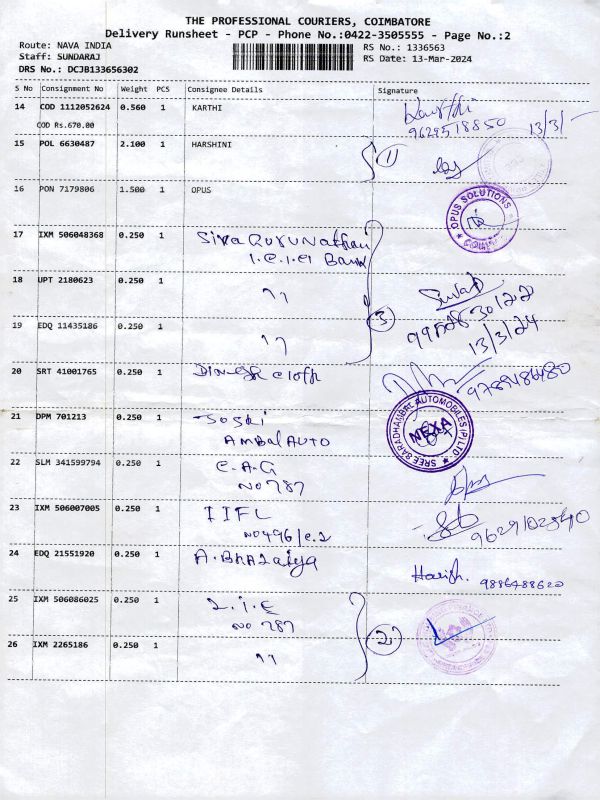 THE PROFESSIONAL COURIERS, COIMBATORE
Delivery Runsheet - PCP - Phone No.:0422-3505555 - Page No.:2
Route: NAVA INDIA
Staff: SUNDARAJ
DRS No.: DCJB133656302
RS No.: 1336563
RS Date: 13-Mar-2024
S No Consignment No Weight PCS Consignee Details Signature
14 COD 1112052624 0.560 1 KARTHI
COD Rs.670.00
9629518850 13/3/-
15 POL 6630487 2.100 1 HARSHINI
1
16 PON 7179806 1.500 1 OPUS
OPUS SOLUTIONS
17 IXM 506048368 0.250 1 Siva Gurunathan
I.C.I.CI Bank
18 UPT 2180623 0.250 1 "
3
13/3/24
19 EDQ 11435186 0.250 1 "
20 SRT 41001765 0.250 1 Dinesh cloth
SREE SARADHAMBAL AUTOMOBILES (P) LTD
NEXA
21 DPM 701213 0.250 1
AMBAL AUTO
22 SLM 341599794 0.250 1 C.A.G
NO 787
23 IXM 506007005 0.250 1 IIFL
NO 496/c.2
24 EDQ 21551920 0.250 1 A.
Harish. 9886488620
25 IXM 506086025 0.250 1 L.I.C
NO 787
2
26 IXM 2265186 0.250 1 "